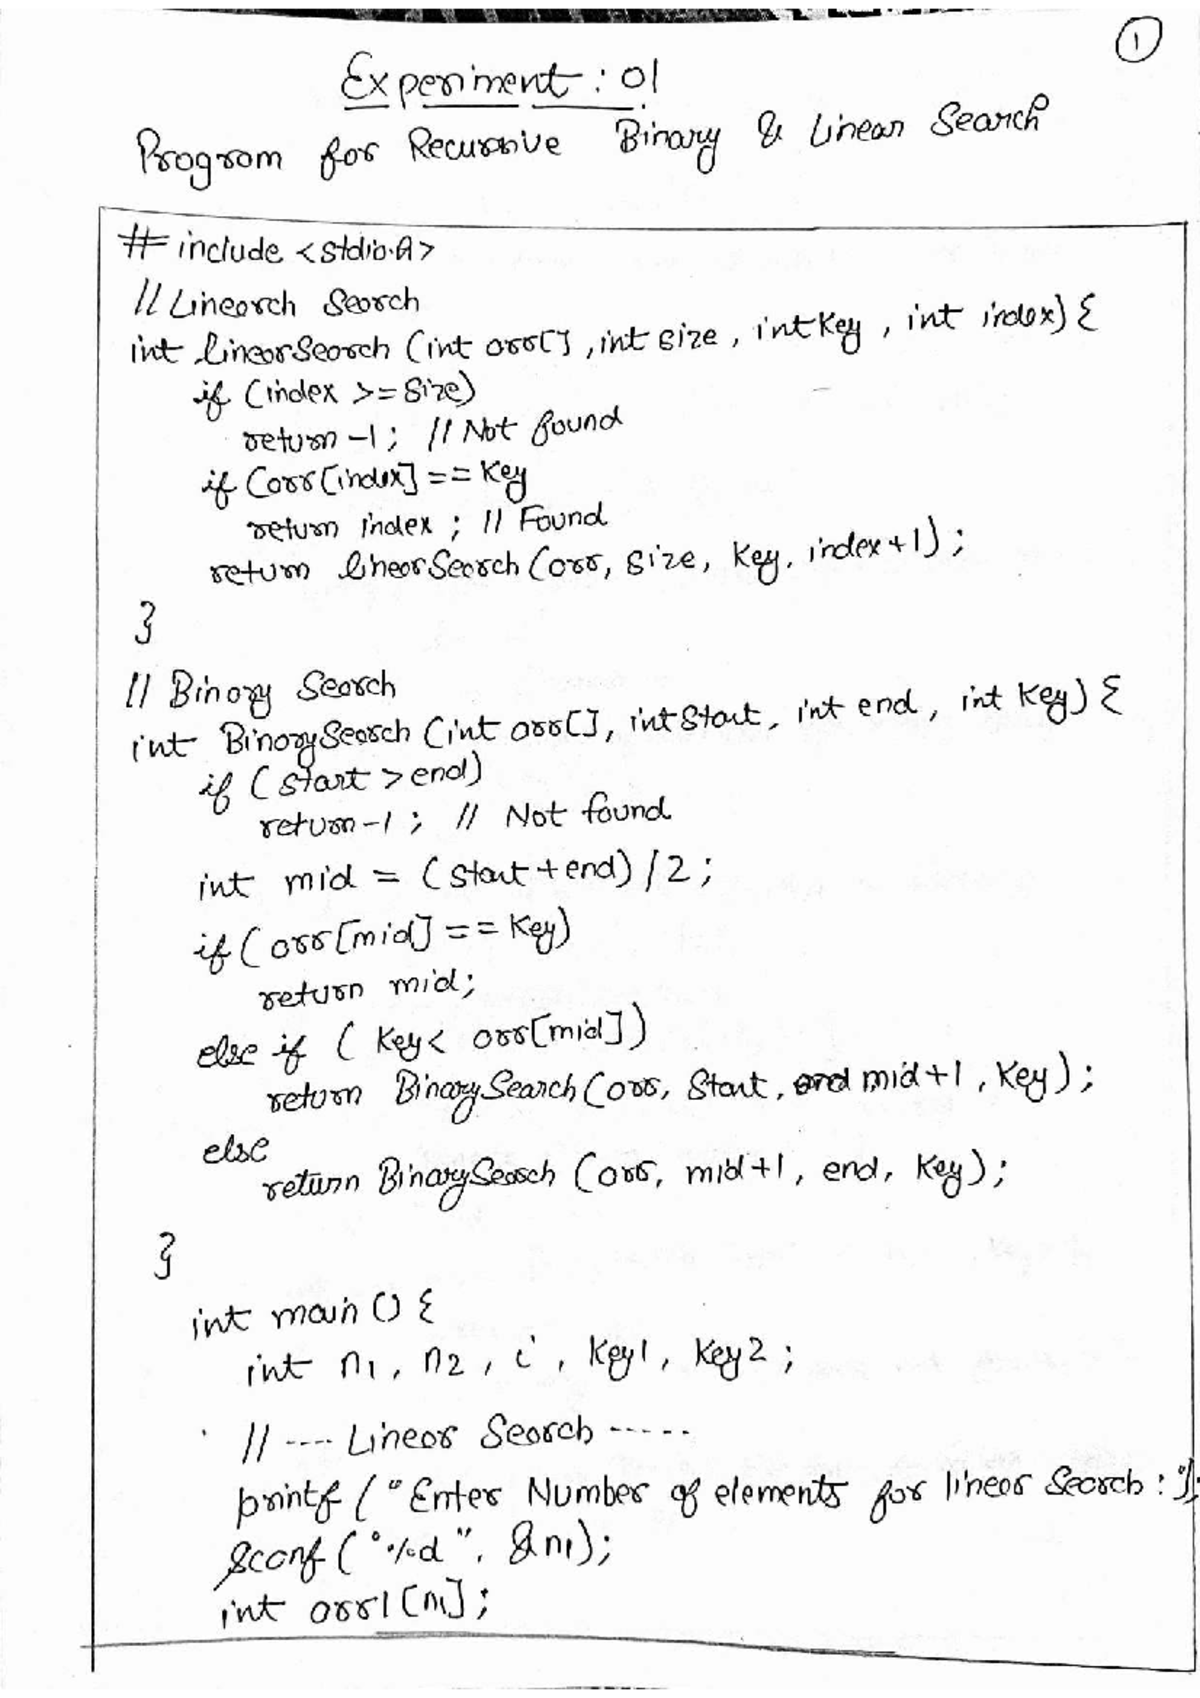 1
Experiment : 01
Program for Recursive Binary & Linear Search
# include <stdio.h>
// Linearch Search
int linearSearch (int arr[], int size, int Key, int index) {
if (index >= Size)
return -1; // Not found
if (arr[index] == Key
return index ; // Found
return linearSearch (arr, size, Key, index+1);
}
// Binary Search
int BinarySearch (int arr[], int Start, int end, int Key) {
if (start > end)
return -1; // Not found
int mid = (start + end) /2;
if (arr[mid] == Key)
return mid;
else if ( Key < arr[mid])
return BinarySearch (arr, Start, mid+1, Key);
else
return BinarySearch (arr, mid+1, end, Key);
}
int main () {
int n1, n2, i, Key1, Key2;
// ---- Linear Search -----
printf ("Enter Number of elements for linear Search : ");
Sconf ("%d", &n1);
int arr1 [n1];